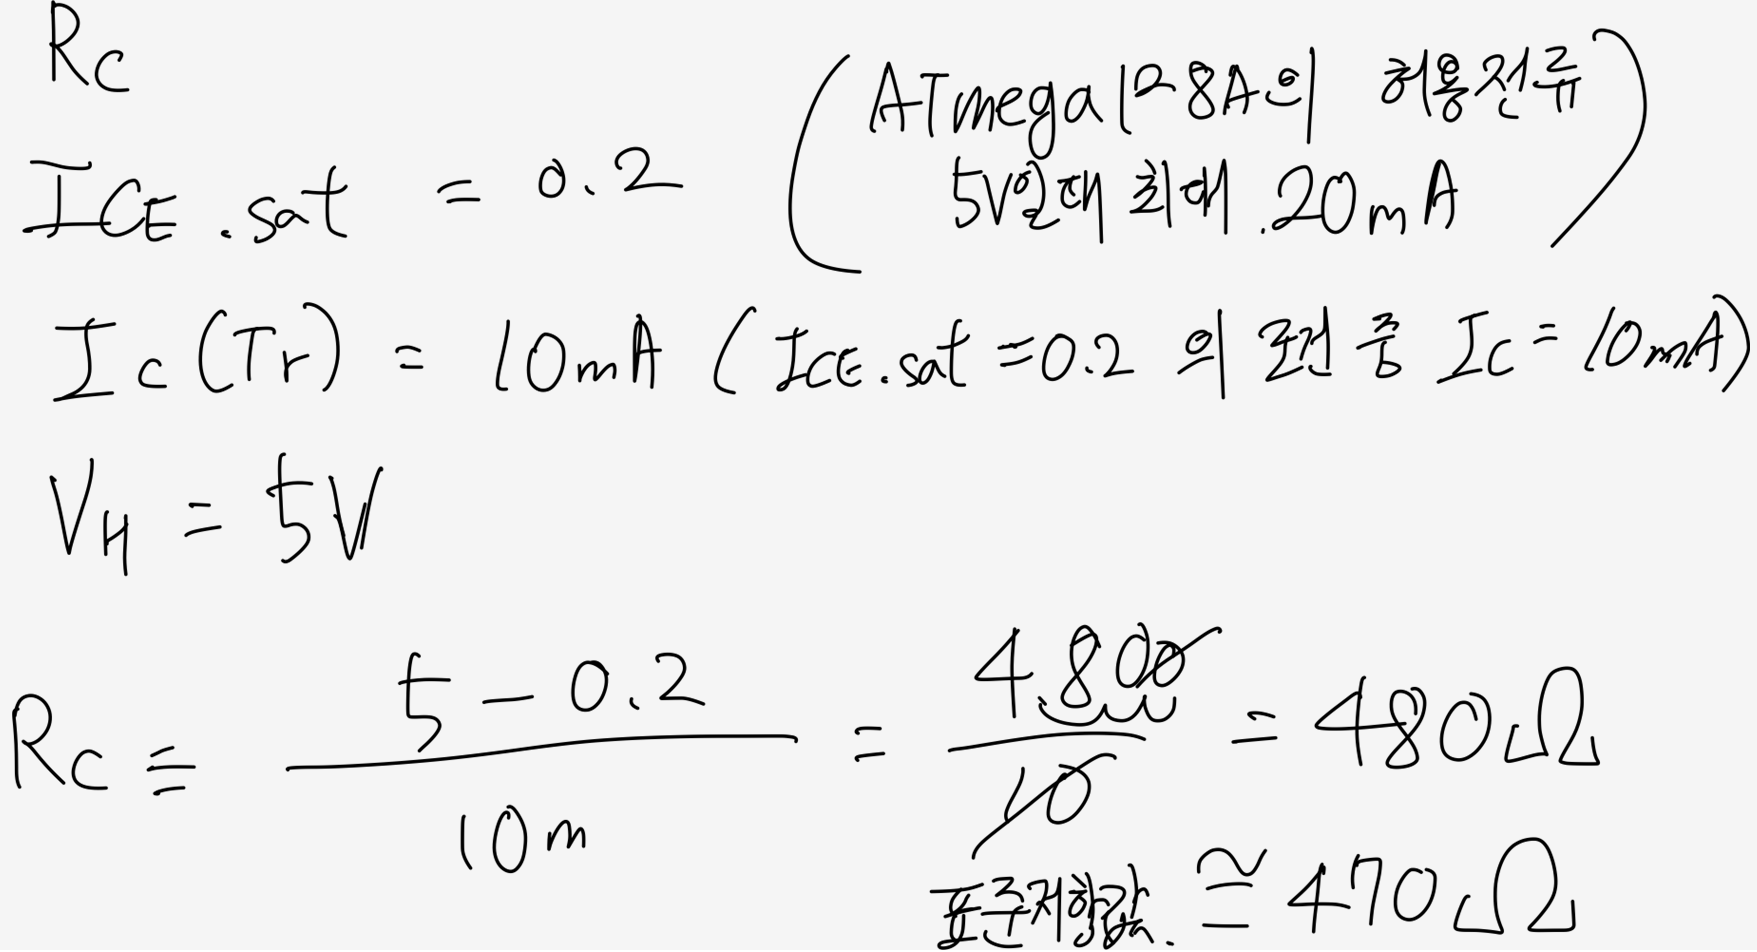 Rc
ICE.sat = 0.2 (ATmega128A의 허용전류
5V일때 최대 .20mA)
Ic(Tr) = 10mA (ICE.sat = 0.2 의 조건 중 Ic = 10mA)
VH = 5V
Rc ≡ 5 - 0.2 / 10m = 4.800 / 10 = 480Ω
표준저항값. ≅ 470Ω